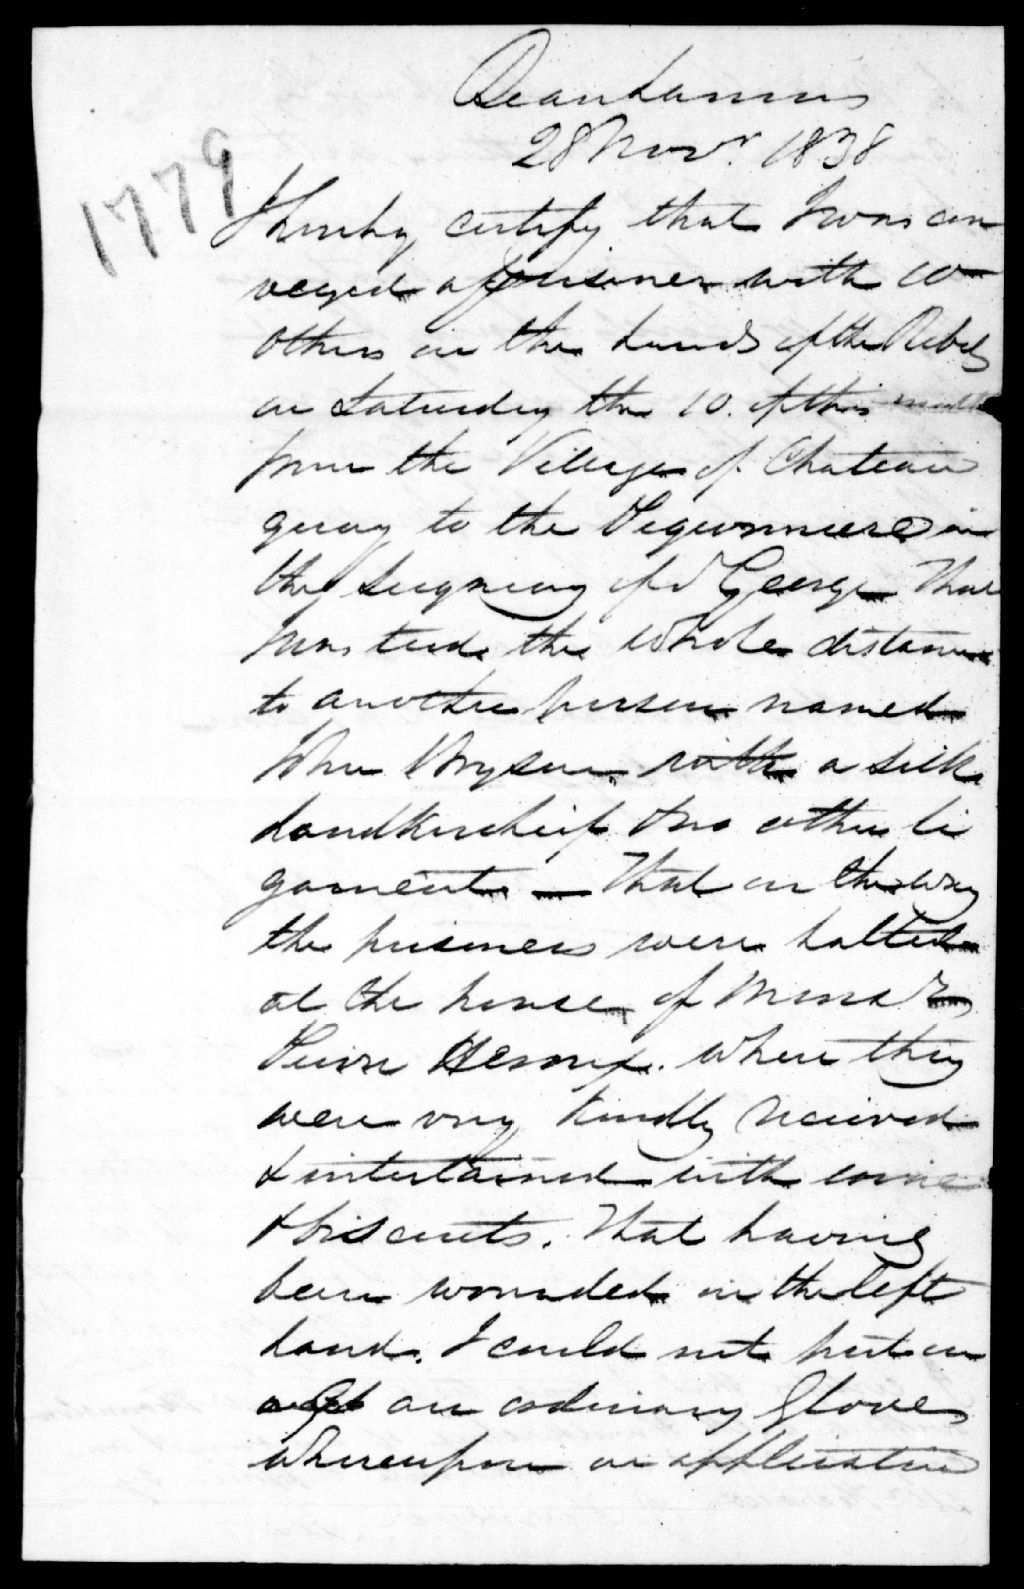 Beauharnois
28 Novr. 1838
1779
I hereby certify that I was con
veyed a prisoner with 10
others in the hands of the Rebels
on Saturday the 10. of this month
from the Village of Chateau
guay to the Pigeonniere in
the Seigneury of La George That
I was tied the whole distance
to another person named
John Bryson, with a silk
handkerchief two other li
gaments — That on the way
the prisoners were halted
at the house of Monsr
Pierre Hemy. where they
were very kindly received
& intertained with wine
& biscuits. That having
been wounded in the left
hand. I could not put on
an ordinary glove,
whereupon on application